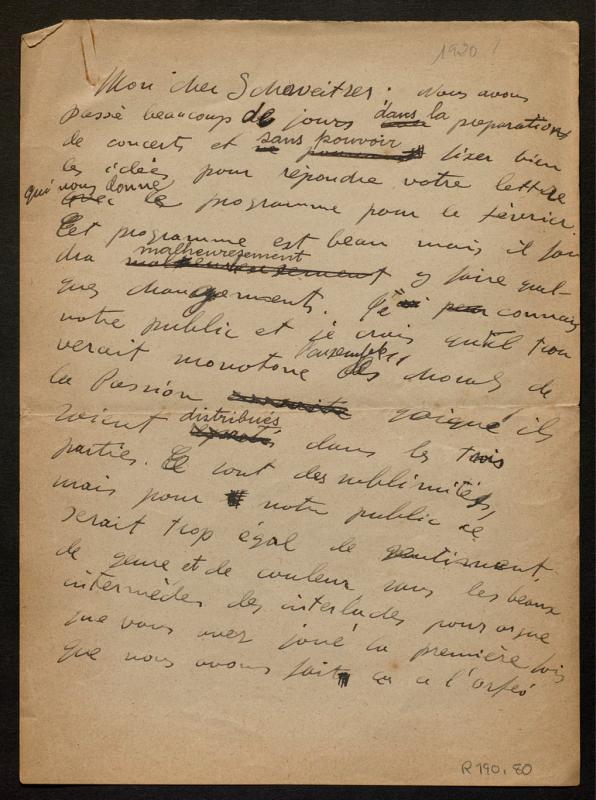 1920?
Mon cher Schweitzer: Nous avons
passé beaucoup de jours dans la preparations
de concerts et sans pouvoir fixer bien
les idées pour répondre votre lettre
qui nous donne le programme pour le février.
Cet programme est beau mais il fau
dra malheuresement y faire quel-
ques changements. Je connais
notre public et je crois qu'il trou
verait monotone l'ensemble des chorals de
la Passion quoique ils
soient distribués dans les trois
parties. Ce sont des sublimités,
mais pour notre public ce
serait trop égal de sentiment,
de genre et de couleur sans les beaux
intermèdes des interludes pour orgue
que vous avez joué la première fois
que nous avons fait ça a l'orfeó
R190,80